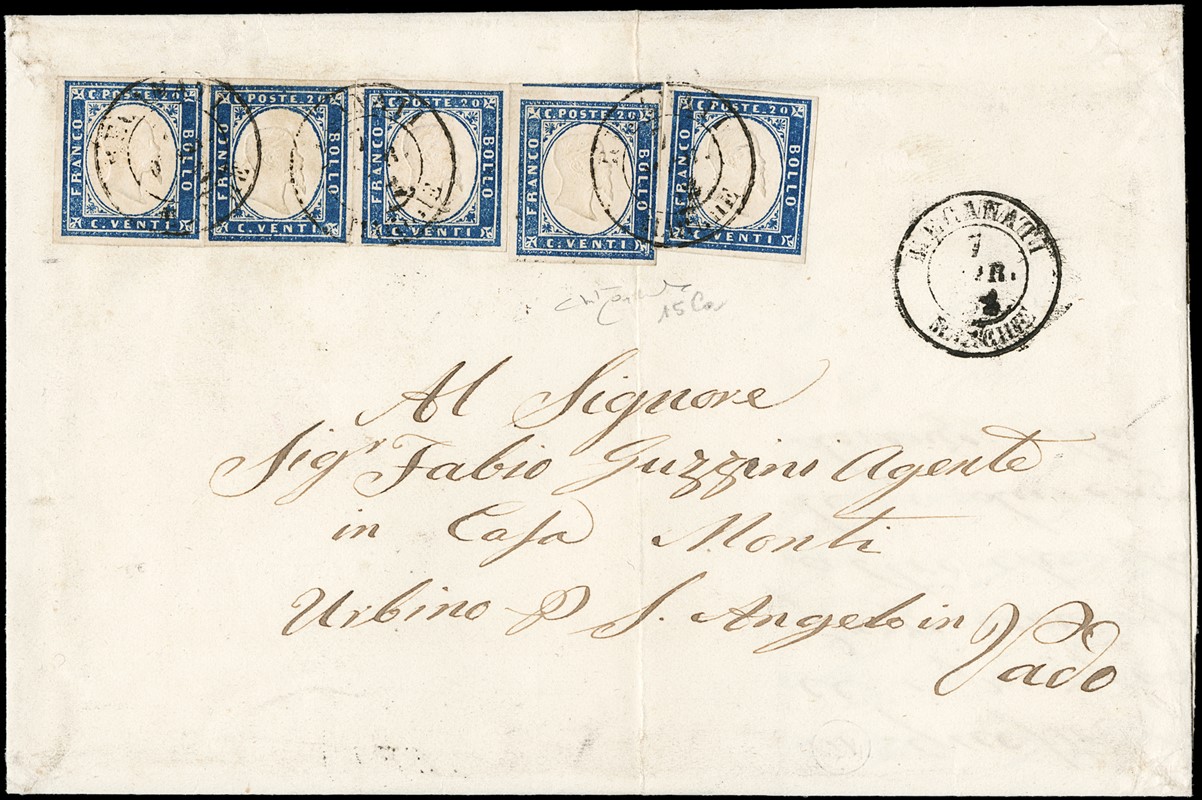 C. POSTE. 20
FRANCO
BOLLO
C. VENTI
C. POSTE. 20
FRANCO
BOLLO
C. VENTI
C. POSTE. 20
FRANCO
BOLLO
C. VENTI
C. POSTE. 20
FRANCO
BOLLO
C. VENTI
C. POSTE. 20
FRANCO
BOLLO
C. VENTI
RECANATI
7
MARCHE
15
Al Signore
Sigr Fabio Guzzini Agente
in Casa Monti
Urbino P S. Angelo in
Vado